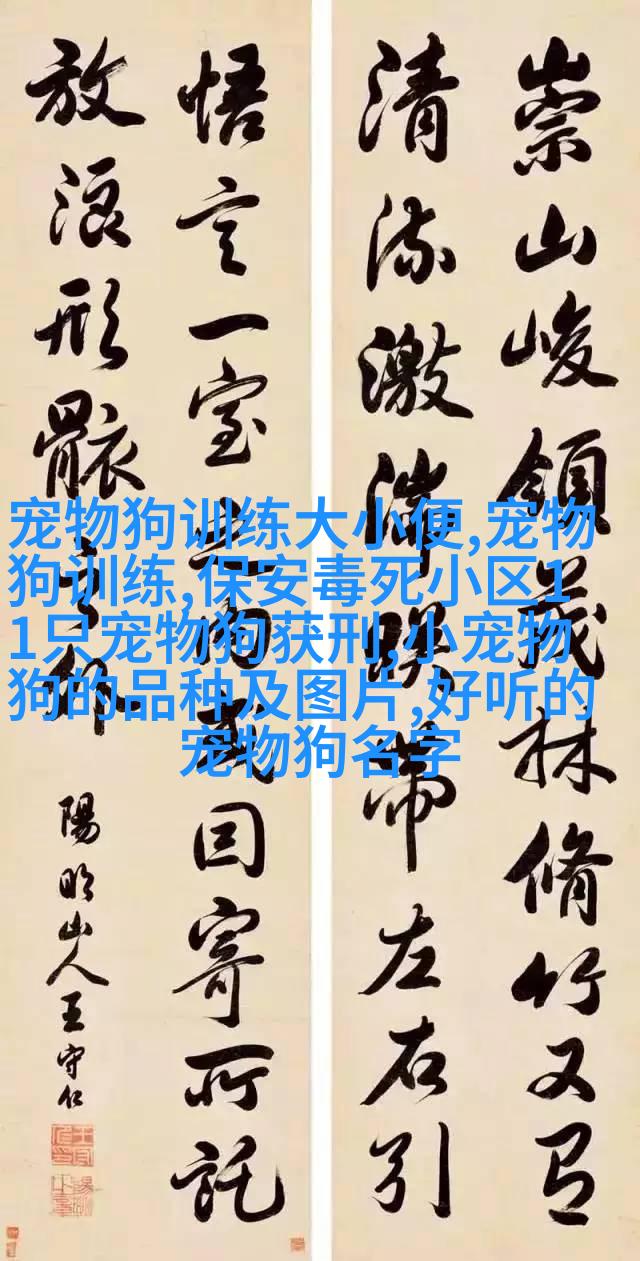 崇山峻領茂林脩竹又有
清流激湍映帶左右引
悟言一室之内或因寄所託
放浪形骸之外
陽明山人王守仁
宠物狗训练大小便,宠物
狗训练,保安毒死小区1
1只宠物狗获刑,小宠物
狗的品种及图片,好听的
宠物狗名字